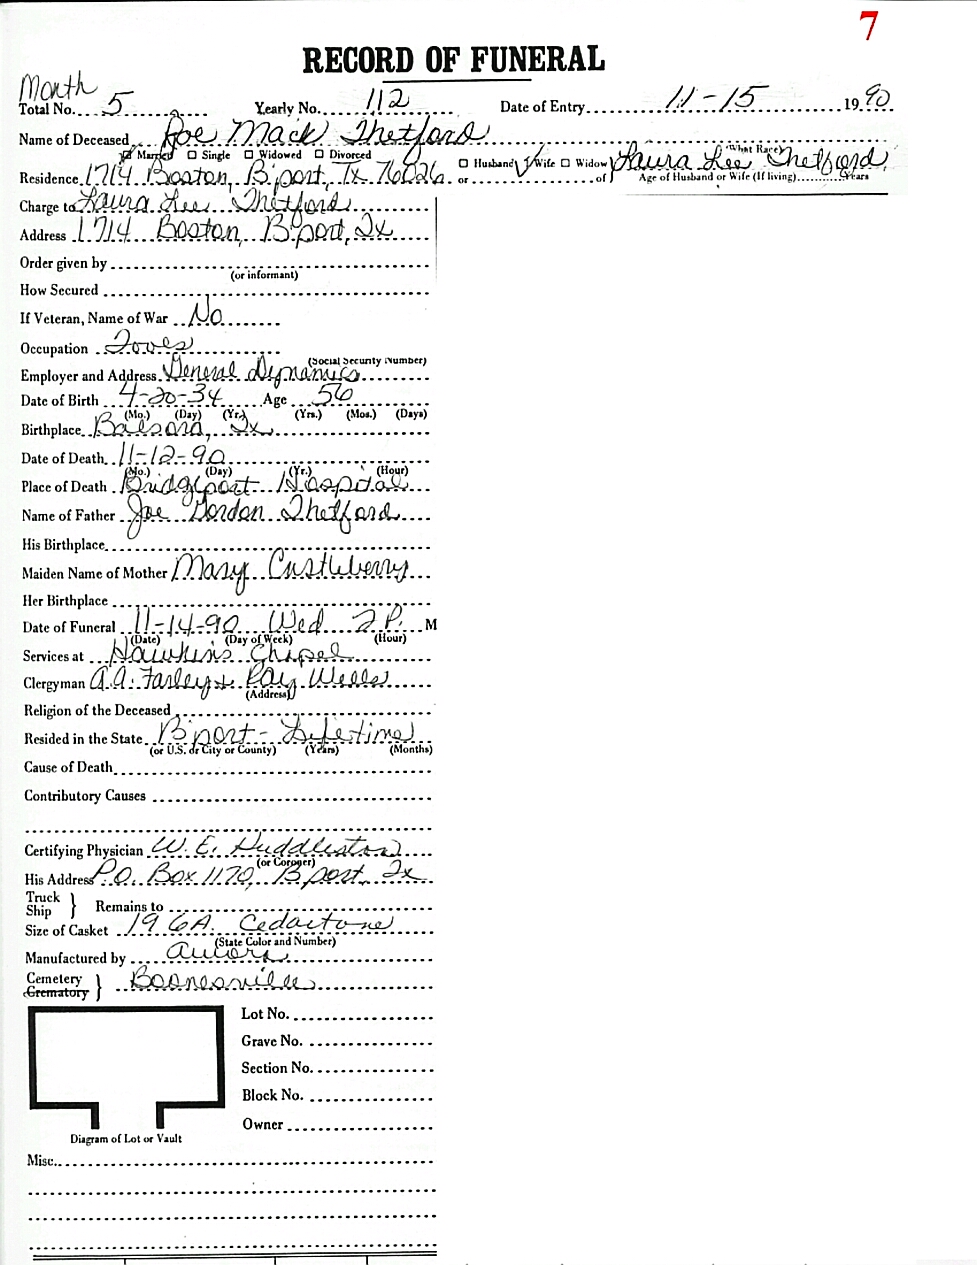 7
RECORD OF FUNERAL
Month
Total No. 5 Yearly No. 112 Date of Entry 11-15 1990
Name of Deceased Joe Mack Thetford
Married Single Widowed Divorced Husband Wife Widow (What Race)
Residence 1714 Boston, B'port, Tx 76026 or of Laura Lee Thetford
Age of Husband or Wife (If living) Years
Charge to Laura Lee Thetford
Address 1714 Boston, B'port, Tx
Order given by
(or informant)
How Secured
If Veteran, Name of War No
Occupation
(Social Security Number)
Employer and Address General Dynamics
Date of Birth 4-20-34 Age 56
(Mo.) (Day) (Yr.) (Yrs.) (Mos.) (Days)
Birthplace Balsora, Tx
Date of Death 11-12-90
(Mo.) (Day) (Yr.) (Hour)
Place of Death Bridgeport Hospital
Name of Father Joe Gordon Thetford
His Birthplace
Maiden Name of Mother Mary Castleberry
Her Birthplace
Date of Funeral 11-14-90 Wed 2 P. M
(Date) (Day of Week) (Hour)
Services at Hawkins Chapel
Clergyman A.A. Farley & Ray Wells
(Address)
Religion of the Deceased
Resided in the State B'port - Lifetime
(or U.S. or City or County) (Years) (Months)
Cause of Death
Contributory Causes
Certifying Physician W. E. Huddleston
(or Coroner)
His Address P.O. Box 1170, B'port, Tx
Truck
Ship } Remains to
Size of Casket 19 6A Cedartone
(State Color and Number)
Manufactured by
Cemetery
Crematory } Boonesville
Lot No.
Grave No.
Section No.
Block No.
Owner
Diagram of Lot or Vault
Misc.